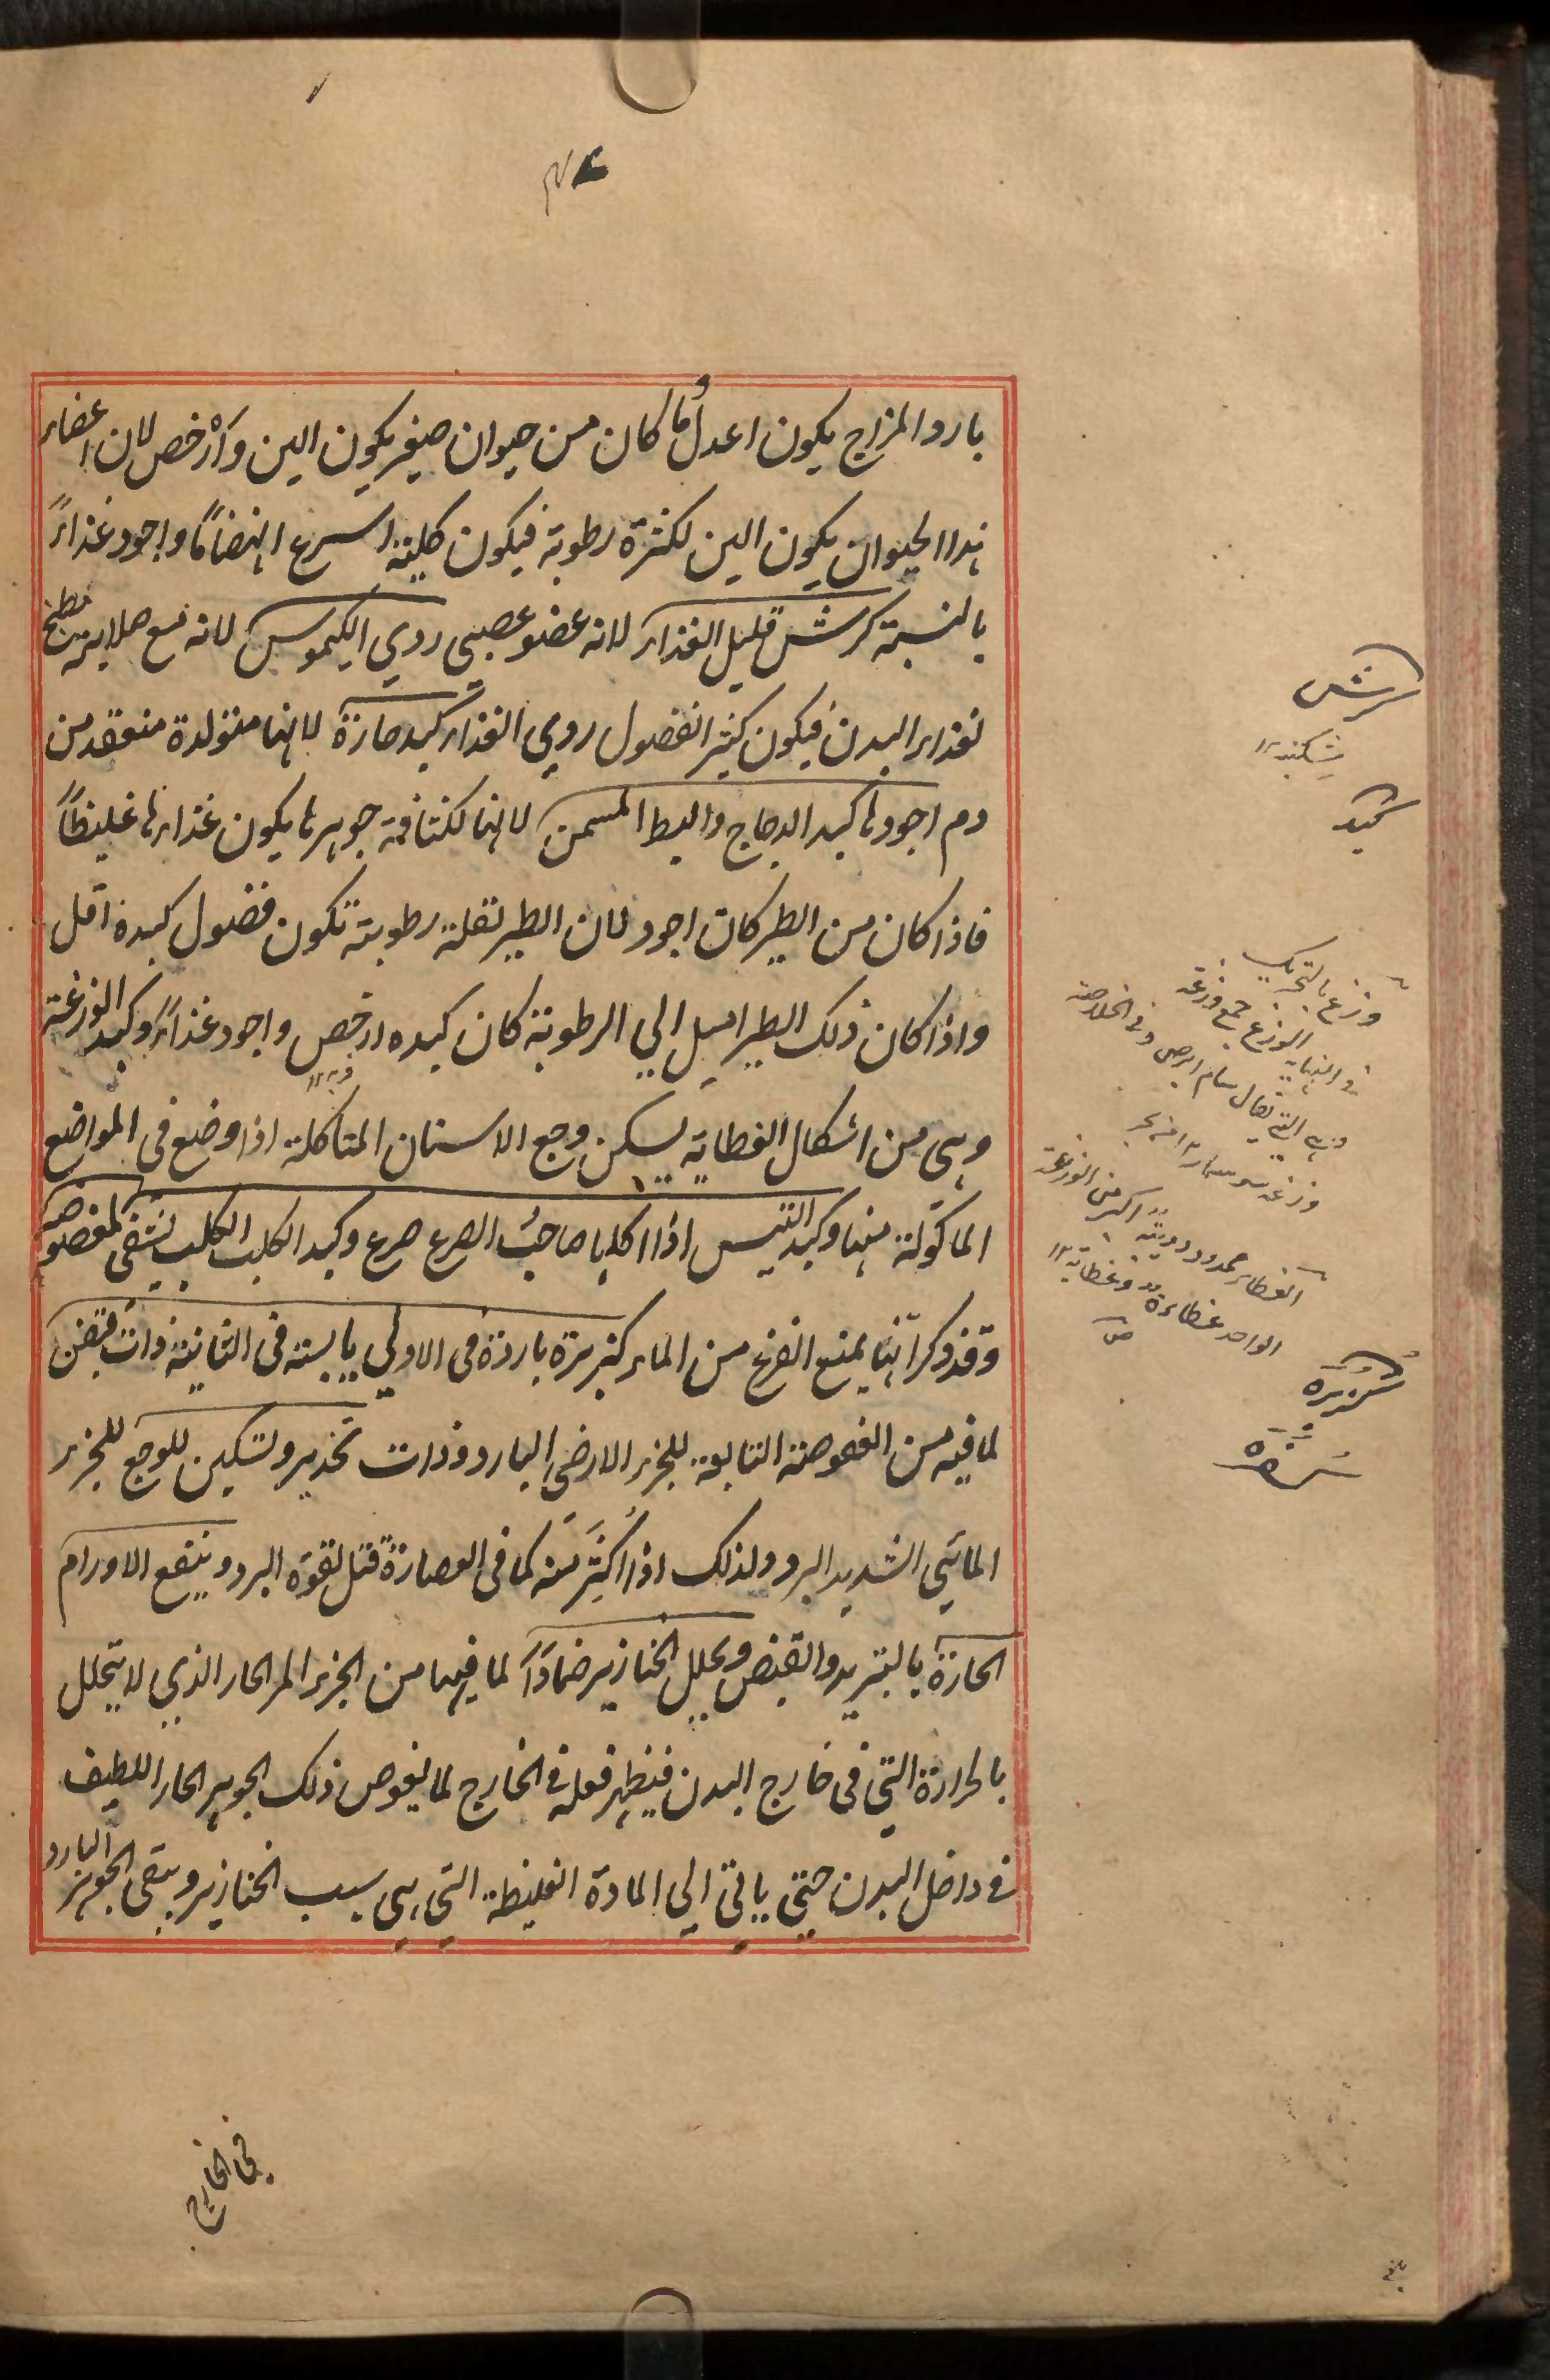 بارد المزاج يكون اعدل وما كان من حيوان صغير يكون الين وأرخص لان اعضاء
هذا الحيوان يكون الين لكثرة رطوبة فيكون كليته اسرع انهضامًا واجود غذاءً
بالنسبة كرش قليل الغذاء لانه عضو عصبي ردي الكيموس لانه مع صلابته مطبخ
لغذاء البدن فيكون كثير الفضول ردي الغذاء كبد حارة لانها متولدة منعقد من
دم اجودها كبد الدجاج والبط المسمن لانها لكثافة جوهرها يكون غذاءها غليظًا
فاذا كان من الطير كان اجود لان الطير لقلة رطوبته تكون فضول كبده اقل
واذا كان ذلك الطير اميل الي الرطوبة كان كبده ارخص واجود غذاءً وكبد الوزغة
وهي من اشكال الغطاية يسكن وجع الاسنان المتاكلة اذا وضع في المواضع
الماكولة منها وكبد التيس اذا اكلها صاحبُ الصرع صرع وكبد الكلب الكلب تشفي لمعضوضه
وقد ذكر انها يمنع الفزع من الماء كزبرة باردة في الاولي يابسة في الثانية ذات قبض
لما فيه من العفوصة التابعة للجزء الارضي البارد وذات تخدير وتسكين للوجع للجزء
المائي الشديد البرد ولذلك اذا اُكثِرَ منه كما في العصارة قتل لقوة البرد وينفع الاورام
الحارة بالتبريد والقبض ويحلل الخنازير ضمادًا لما فيها من الجزء المر الحار الذي لا يتحلل
بالحرارة التي في خارج البدن فيظهر فعله في الخارج لما يغوص ذلك الجوهر الحار اللطيف
في داخل البدن حتي ياتي الي المادة الغليظة التي هي سبب الخنازير ويبقي الجوهر البارد
في الخارج
كرش
شكنبه
كبد
وزغ بالتحريك
في النهاية الوزغ جمع وزغة
وهي التي يقال سام ابرص وفي الخلاصة
وزغه
الغطاء ممدود دويبة اكبر من الوزغة
الواحد غطاءة وغطاية
ص
كزبرة